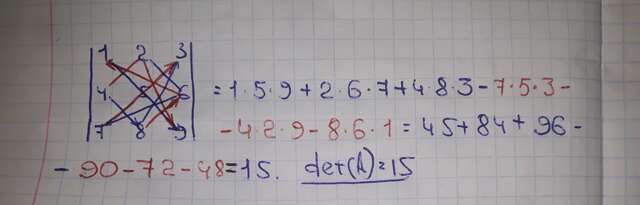 1 2 3
4 5 6 = 1·5·9+2·6·7+4·8·3-7·5·3-
7 8 9 -4·2·9-8·6·1=45+84+96-
-90-72-48=15. det(A)=15